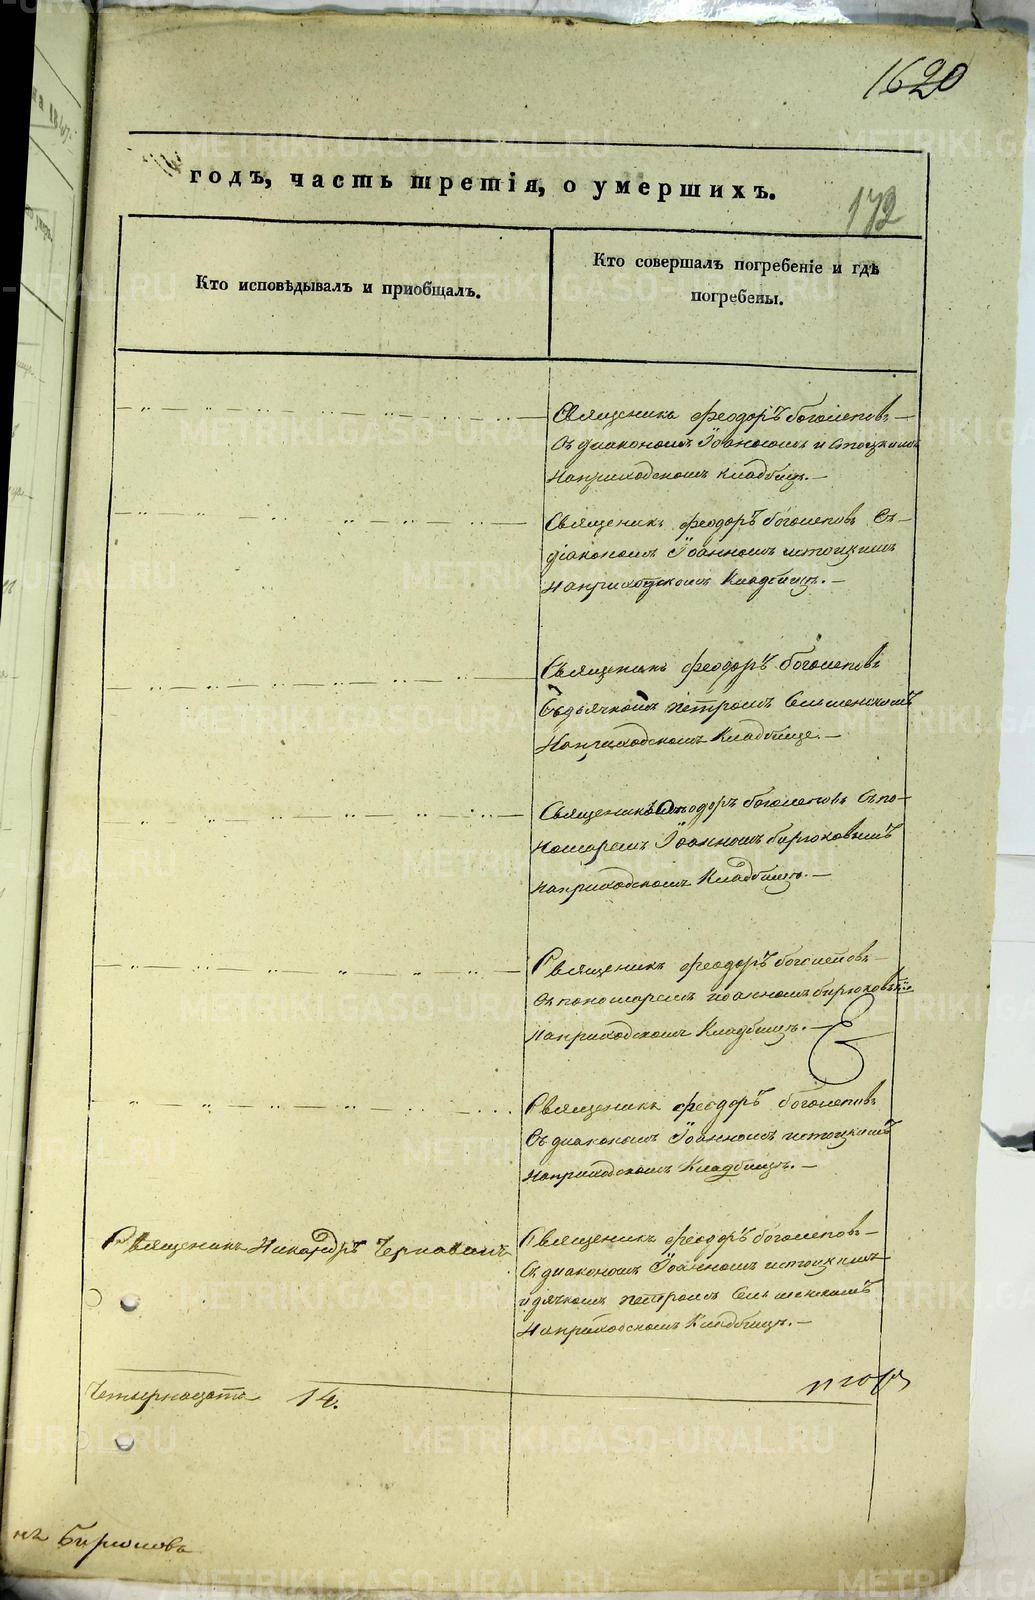 1620
годъ, часть третія, о умершихъ.
172
Кто исповѣдывалъ и пріобщалъ.
Кто совершалъ погребеніе и гдѣ
погребены.
Священникъ Феодоръ Боголеповъ
съ диакономъ Іоанномъ
наприходскомъ кладбищѣ.
Священикъ Феодоръ Боголеповъ съ
діакономъ Іоанномъ
наприходскомъ кладбищѣ.
Священикъ Феодоръ Боголеповъ
съ дьячкомъ Петромъ
наприходскомъ кладбище.
Священикъ Феодоръ Боголеповъ съ по-
номаремъ Іоанномъ Бирюковымъ
наприходскомъ кладбищѣ.
Священикъ Феодоръ Боголеповъ
съ пономаремъ Иоанномъ Бирюковымъ
наприходскомъ кладбищѣ.
Священикъ Феодоръ Боголеповъ
съ диакономъ Іоанномъ
наприходскомъ кладбищѣ.
Священикъ Никандръ
Священикъ Феодоръ Боголеповъ
съ диакономъ Іоанномъ
и дячкомъ Петромъ
наприходскомъ кладбищѣ.
Четырнадцать 14.
нъ Бирюковъ
METRIKI.GASO-URAL.RU